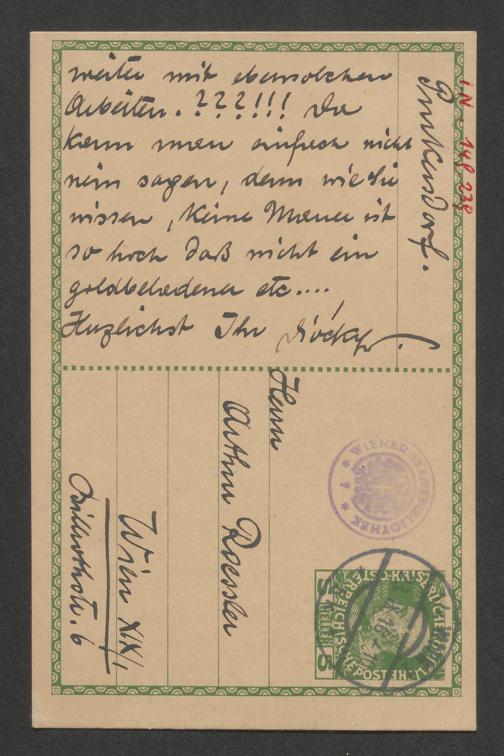 weiter mit ebensolchen
Arbeiten. ???!!! Da
kann man einfach nicht
nein sagen, denn wie Sie
wissen, keine Mauer ist
so hoch daß nicht ein
goldbeladener etc....
Herzlichst Ihr
Purkersdorf.
I.N. 148.238
Herrn
Arthur Roessler
Wien XIX/1
Billrothstr. 6
WIENER STADTBIBLIOTHEK
* 1 *
5 HELLER 5